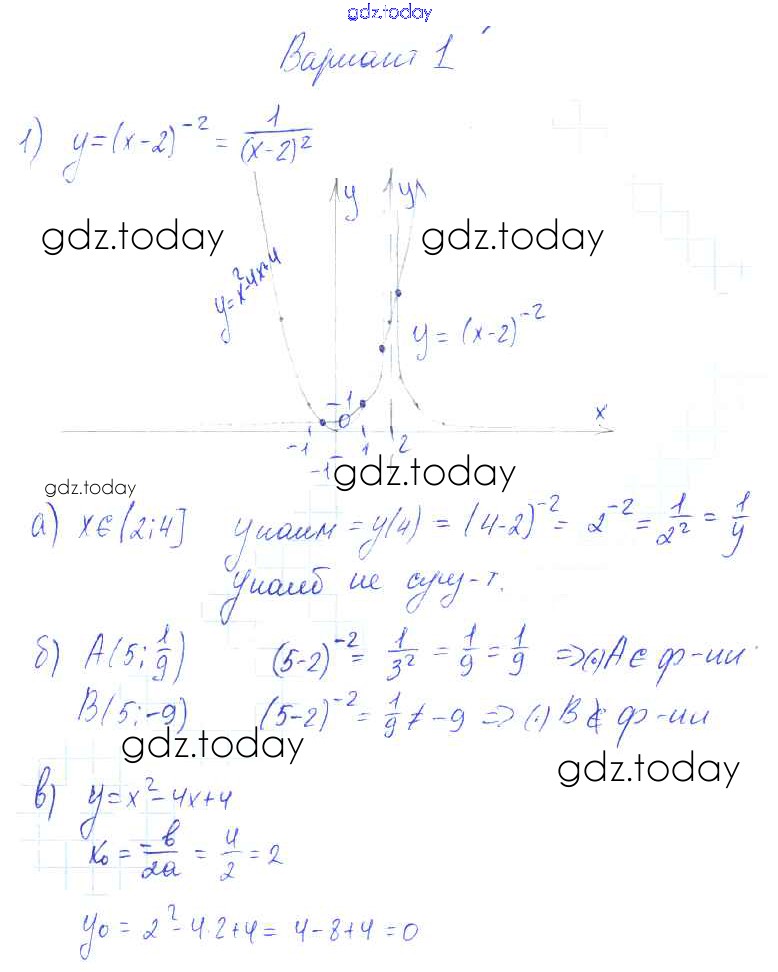 gdz.today
Вариант 1
1) y=(x-2)⁻² = 1/(x-2)²
y y
gdz.today gdz.today
y=x²-4x+4
y=(x-2)⁻²
1
0 x
-1 1 2
-1
gdz.today
gdz.today
а) x∈(2;4] yнаим = y(4) = (4-2)⁻² = 2⁻² = 1/2² = 1/4
yнаиб не сущ-т.
б) A(5; 1/9) (5-2)⁻² = 1/3² = 1/9 = 1/9 => (·)A∈ ф-ии
B(5;-9) (5-2)⁻² = 1/9 ≠ -9 => (·)B∉ ф-ии
gdz.today gdz.today
в) y=x²-4x+4
x₀ = -в/2a = 4/2 = 2
y₀ = 2²-4·2+4 = 4-8+4 = 0